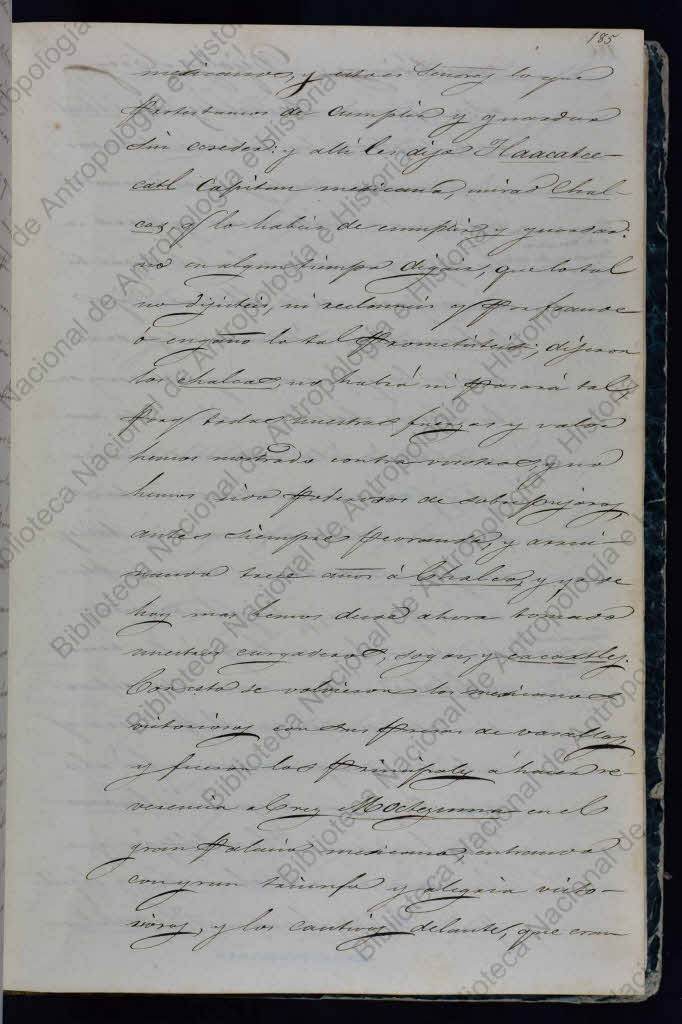 185
mexicanos, y estos Señores lo que
protestamos de cumplir y guardar
sin exceder: y alli les dijo Tlacatee-
catl Capitan mexicano, mirad Chal-
cas, q/ lo habeis de cumplir, y guardar.
no en algun tiempo digais, que lo tal
no dijisteis, ni reclameis y por fraude
ó engaño lo tal prometisteis; dijeron
los chalcas, no habrá ni pasará tal,
porq/ todas nuestras fuerzas y valor
hemos mostrado contra vosotros, y no
hemos sido poderosos de sobrepujaros,
antes siempre peorando, y arrui-
nando trece años á Chalco, y ya de
hoy mas hemos desde ahora tomado
nuestros cargaderos, sogas, y cacaxtles.
Con esto se volvieron los mexicanos
victoriosos con sus presas de vasallos,
y fueron los principales á hacer re-
verencia al rey Moctezuma en el
gran Palacio mexicano, entrando
con gran triunfo y alegria victo-
riosos, y los cautivos delante, que eran
Biblioteca Nacional de Antropología e Historia